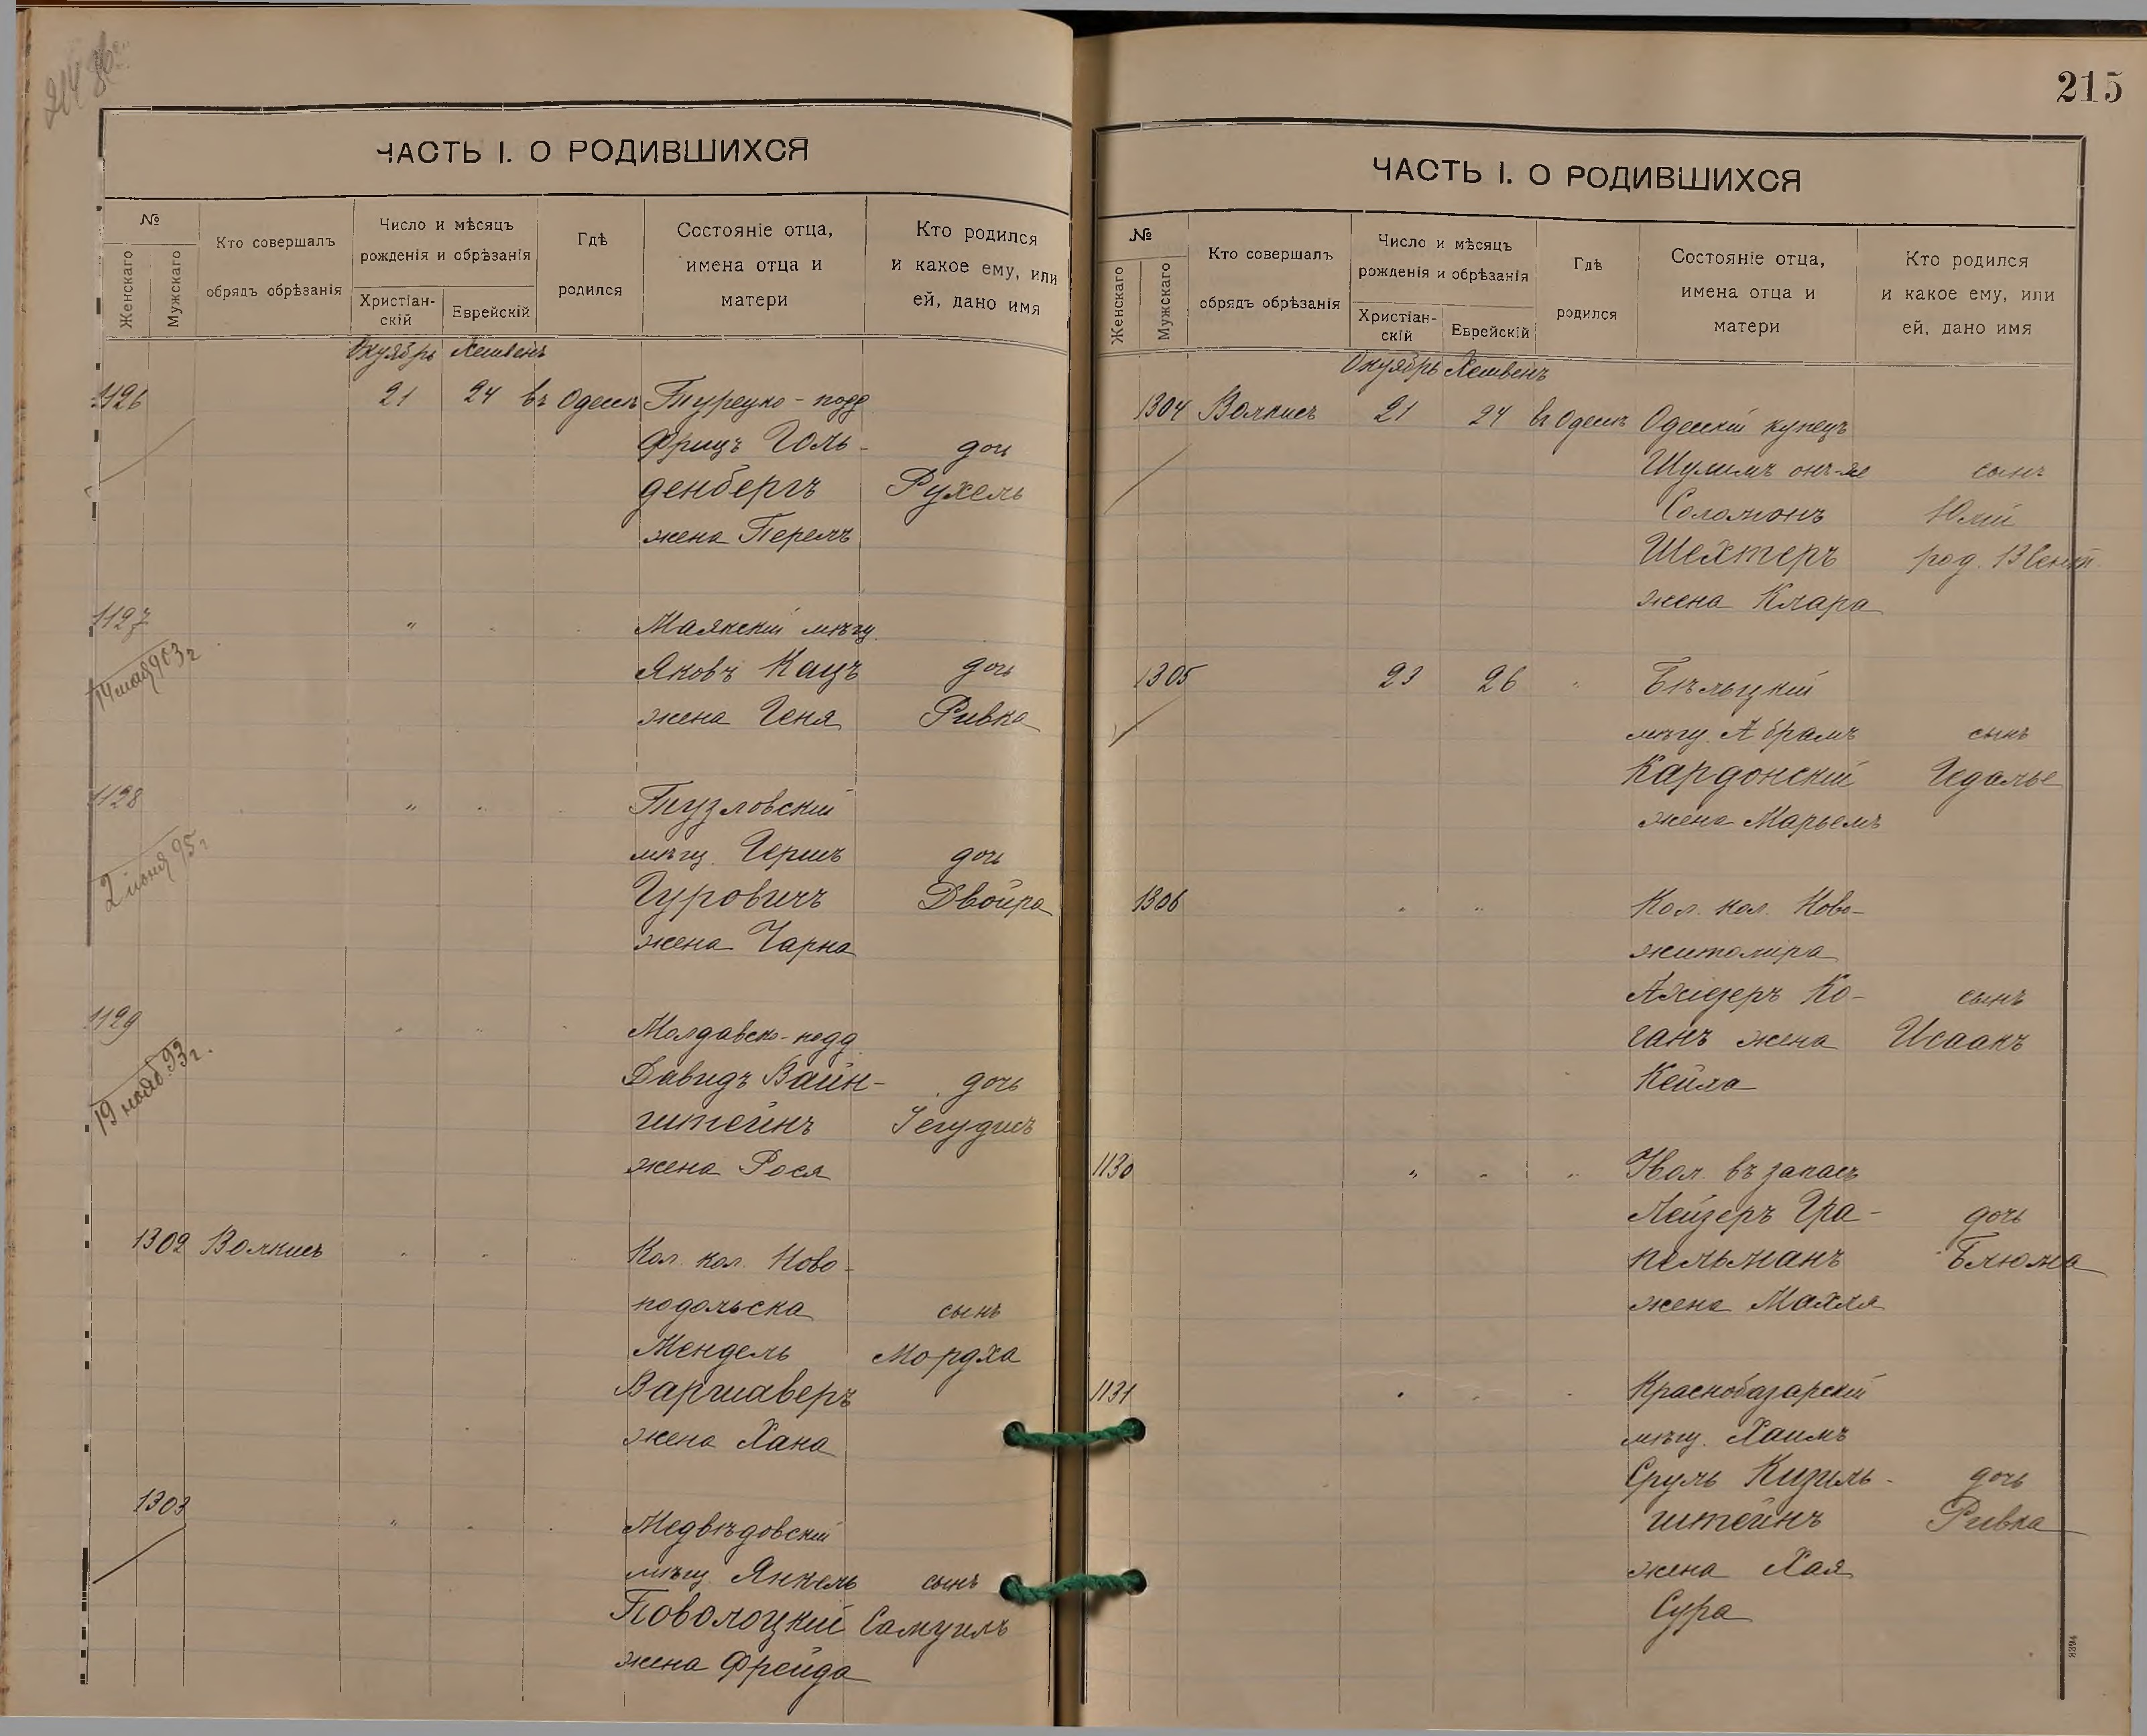 ЧАСТЬ I. О РОДИВШИХСЯ
№
Женскаго
Мужскаго
Кто совершалъ
обрядъ обрѣзанія
Число и мѣсяцъ
рожденія и обрѣзанія
Христіан-
скій
Еврейскій
Гдѣ
родился
Состояніе отца,
имена отца и
матери
Кто родился
и какое ему, или
ей, дано имя
Октябрь Хешвенъ
1126 21 24 въ Одессѣ Турецко-подд
Фрицъ Голь- доч
денбергъ Рухель
жена Перель
1127 " Маякскій мѣщ.
14 мая 903 г
Яковъ Кацъ дочь
жена Геня Ривка
1128 " Тузловскій
2 июня 95 г
мѣщ. Гершъ дочь
Гуровичъ Двойра
жена Чарна
1129 Молдавско-подд
19 нояб. 93 г.
Давидъ Вайн- дочь
штейнъ Iегудисъ
жена Рося
1302 Волкисъ Кол. кол. Ново-
подольска сынъ
Мендель Мордха
Варшаверъ
жена Хана
1303 " Медвѣдовскій
мѣщ. Янкель сынъ
Поволоцкій Самуилъ
жена Фрейда
215
ЧАСТЬ I. О РОДИВШИХСЯ
№
Женскаго
Мужскаго
Кто совершалъ
обрядъ обрѣзанія
Число и мѣсяцъ
рожденія и обрѣзанія
Христіан-
скій
Еврейскій
Гдѣ
родился
Состояніе отца,
имена отца и
матери
Кто родился
и какое ему, или
ей, дано имя
Октябрь Хешвенъ
1304 Волкисъ 21 24 въ Одессѣ Одесскій купецъ
Шулимъ онъ-же сынъ
Соломонъ Юлій
Шехтеръ род. 13 Сент.
жена Клара
1305 23 26 " Бѣльцкій
мѣщ. Абрамъ сынъ
Кардонскій Гедалье
жена Марьемъ
1306 " " Кол. кол. Ново-
житомира
Ахіезеръ Ко- сынъ
ганъ жена Исаакъ
Кейла
1130 " " " Увол. въ запасъ
Лейзеръ Гра- дочь
пельманъ Блюма
жена Махля
1131 Краснобазарскій
мѣщ. Хаимъ
Сруль Кизиль- дочь
штейнъ Ривка
жена Хая
Сура